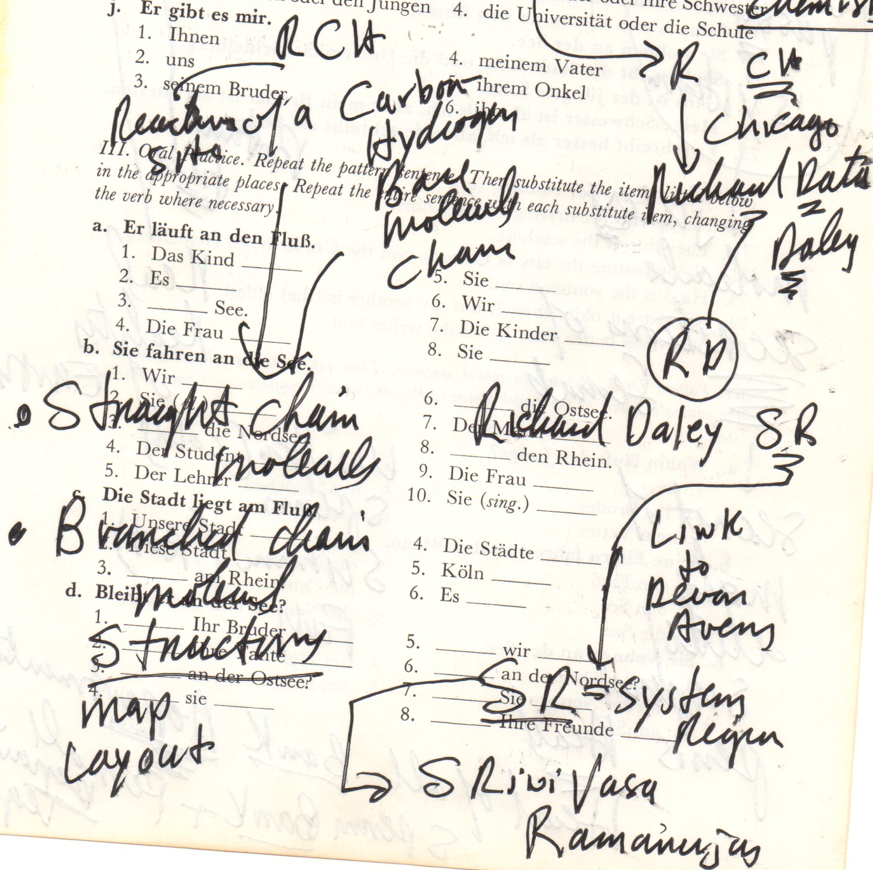 oder den Jungen
4. die Universität oder die Schule
j. Er gibt es mir.
1. Ihnen
2. uns
3. seinem Bruder
4. meinem Vater
ihrem Onkel
6.
RCH
R CH
Chicago
Richard Data
Daley
RD
Richard Daley SR
Link
to
Devon
Avens
SR = System
Region
SRinivasa
Ramanujas
of a Carbon
Hydrogen
Base
Molecule
Chain
III. Oral Practice. Repeat the pattern sentence. Then substitute the items below
in the appropriate places. Repeat the entire sentence with each substitute item, changing
the verb where necessary.
a. Er läuft an den Fluß.
1. Das Kind ______
2. Es ______
3. ______ See.
4. Die Frau ______
5. Sie ______
6. Wir ______
7. Die Kinder ______
8. Sie ______
b. Sie fahren an die See.
1. Wir ______
2. Sie
die Nordsee
4. Der Student
5. Der Lehrer
6. ______ die Ostsee.
7. Der
8. ______ den Rhein.
9. Die Frau ______
10. Sie (sing.) ______
Straight Chain
Molecules
c. Die Stadt liegt am Fluß.
1. Unsere Stadt
2. Diese Stadt
3. ______ am Rhein.
4. Die Städte ______
5. Köln ______
6. Es ______
Branched chain
Molecul
Structures
map
Layout
d. an der See?
1. ______ Ihr Bruder
2. Tante
3. ______ an der Ostsee?
4. ______ sie ______
5. ______ wir ______
6. ______ an der Nordsee?
7. ______ Sie ______
8. ______ Ihre Freunde ______